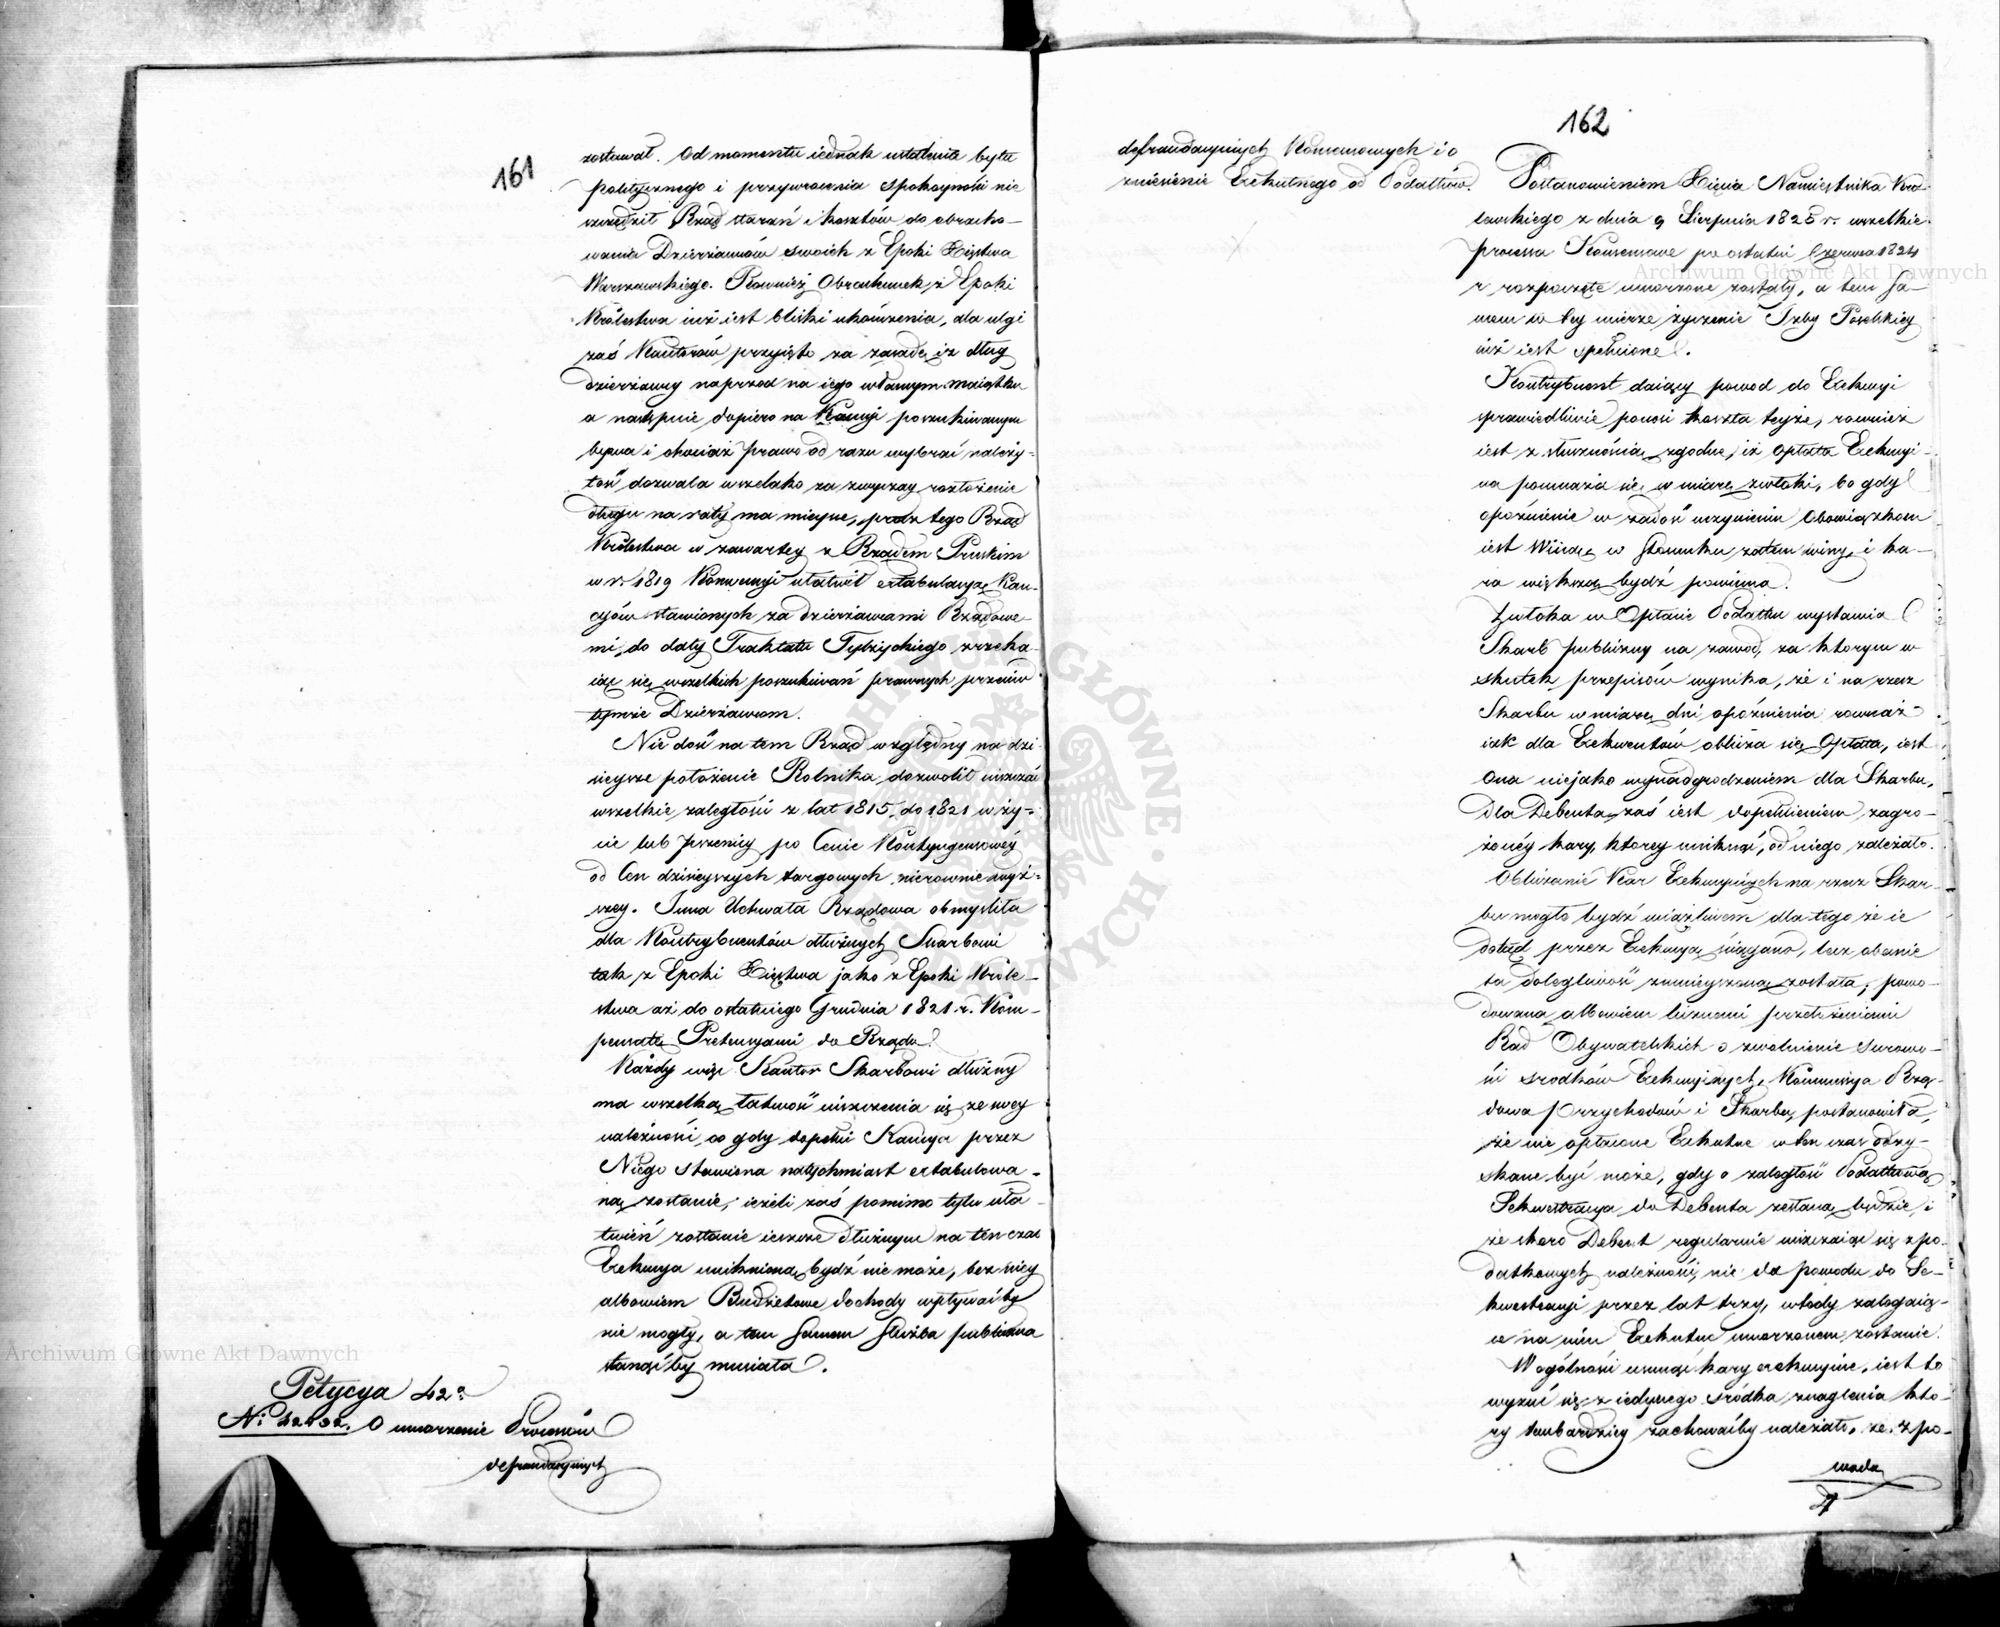 161
zostawał. Od momentu iednak ustalenia bytu
politycznego i przywrocenia spokoyności nie
szczędził Rząd starań i kosztów do obracho-
wania Dzierżawców swoich z Epoki Xięstwa
Warszawskiego. Rownież Obrachunek z Epoki
Królestwa iuż iest bliski ukończenia, dla ulgi
zaś Kautorów przyięto za zasadę iż dług
dzierżawcy naprzod na iego własnym maiątku
a następnie dopiero na Kaucyi poszukiwanym
bywa i chociaż prawo od razu wybrać należy-
tość dozwala wszelako za zwyczay rozłożenie
długu na raty ma mieysce, prócz tego Rząd
Królestwa w zawartey z Rządem Pruskim
w r. 1819 Konwencyi ułatwił extabulacyę Kau-
cyów stawionych za dzierżawami Rządowe-
mi, do daty Traktatu Tylżyckiego zrzeka-
iąc się wszelkich poszukiwań prawnych przeciw
tymże Dzierżawcom.
Nie dość na tem Rząd względny na dzi-
sieysze położenie Rolnika dozwolił uiszczać
wszelkie zaległości z lat 1815 do 1821 w ży-
cie lub pszenicy po Cenie Kontyngensowéy
od Cen dzisieyszych targowych nierownie wyż-
szey. Inna Uchwała Rządowa obmyśliła
dla Kontrybuentów dłużnych Skarbowi
tak z Epoki Xięstwa jako z Epoki Króle-
stwa aż do ostatniego Grudnia 1821 r. Kom-
pensatę Pretensyami do Rządu.
Każdy więc Kautor Skarbowi dłużny
ma wszelką łatwość uiszczenia się ze swey
należności, co gdy dopełni Kaucya przez
Niego stawiona natychmiast extabulowa-
ną zostanie, ieżeli zaś pomimo tylu uła-
twień zostanie ieszcze dłużnym na ten czas
Exekucya unikniona bydź nie może, bez niey
albowiem Budżetowe dochody wpływaćby
nie mogły, a tem samem Służba publiczna
stanąćby musiała.
Petycya 42a
O umorzenie Processów
defraudacyinych
162
defraudacyinych Konsumowych i o
zniesienie Exekutnego od Podatków.
Postanowieniem Xięcia Namiestnika Kró-
lewskiego z dnia 9 Sierpnia 1825 r. wszelkie
processa Konsumowe po ostatni Czerwca 1824
r rozpoczęte umorzone zostały, a tem sa-
mem w tey mierze życzenie Izby Poselskiey
iuż iest spełnione.
Kontrybuent daiący powod do Exekucyi
sprawiedliwie ponosi koszta teyże, rownież
iest z słusznością zgodne, iż Opłata Exekucyi-
na pomnaża się w miarę zwłoki, bo gdy
opoźnienie w zadość uczynieniu Obowiązkom
iest Winą w stosunku zatem winy i ka-
ra większą bydź powinna.
Zwłoka w Opłacie Podatku wystawia
Skarb publiczny na zawod, za ktorym w
skutek przepisów wynika, że i na rzecz
Skarbu w miarę dni opoźnienia rownaż
iak dla Exekwentów oblicza się Opłata, iest
Ona niejako wynadgrodzeniem dla Skarbu,
dla Debenta zaś iest dopełnieniem zagro-
żonéy kary, ktorey uniknąć, od niego zależało.
Obliczanie Kar Exekucyinych na rzecz Skar-
bu mogło bydź uciążliwem dla tego że ie
dotąd przez Exekucyą ściągano, lecz obecnie
ta dolegliwość zmnieyszoną została; powo-
dowana albowiem licznemi przełożeniami
Rad Obywatelskich o zwolnienie surowo-
ści srodków Exekucyinych, Kommissya Rzą-
dowa Przychodów i Skarbu, postanowiła,
że nie opłacone Exekutne w ten czas odzy-
skane być może, gdy o zaległość Podatkową
Sekwestracya do Debenta zesłaną będzie, i
że skoro Debent regularnie uiszczaiąc się z po-
datkowych należności, nie da powodu do Se-
kwestracyi przez lat trzy, wtedy zalegaią-
ce na nim Exekutne umorzonem zostanie.
W ogólności usunąć kary exekucyine, iest to
wyzuć się z iedynego śródka znaglenia któ-
ry tembardziey zachowaćby należało, że z po-
wodu
Archiwum Główne Akt Dawnych
Archiwum Główne Akt Dawnych
ARCHIWUM GŁÓWNE AKT DAWNYCH